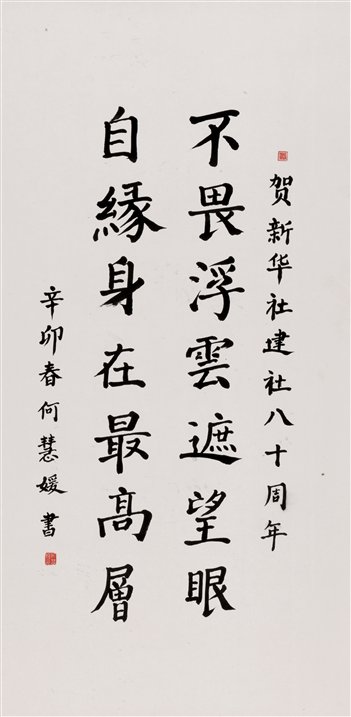 贺新华社建社八十周年
不畏浮雲遮望眼
自緣身在最高層
辛卯春何慧媛書